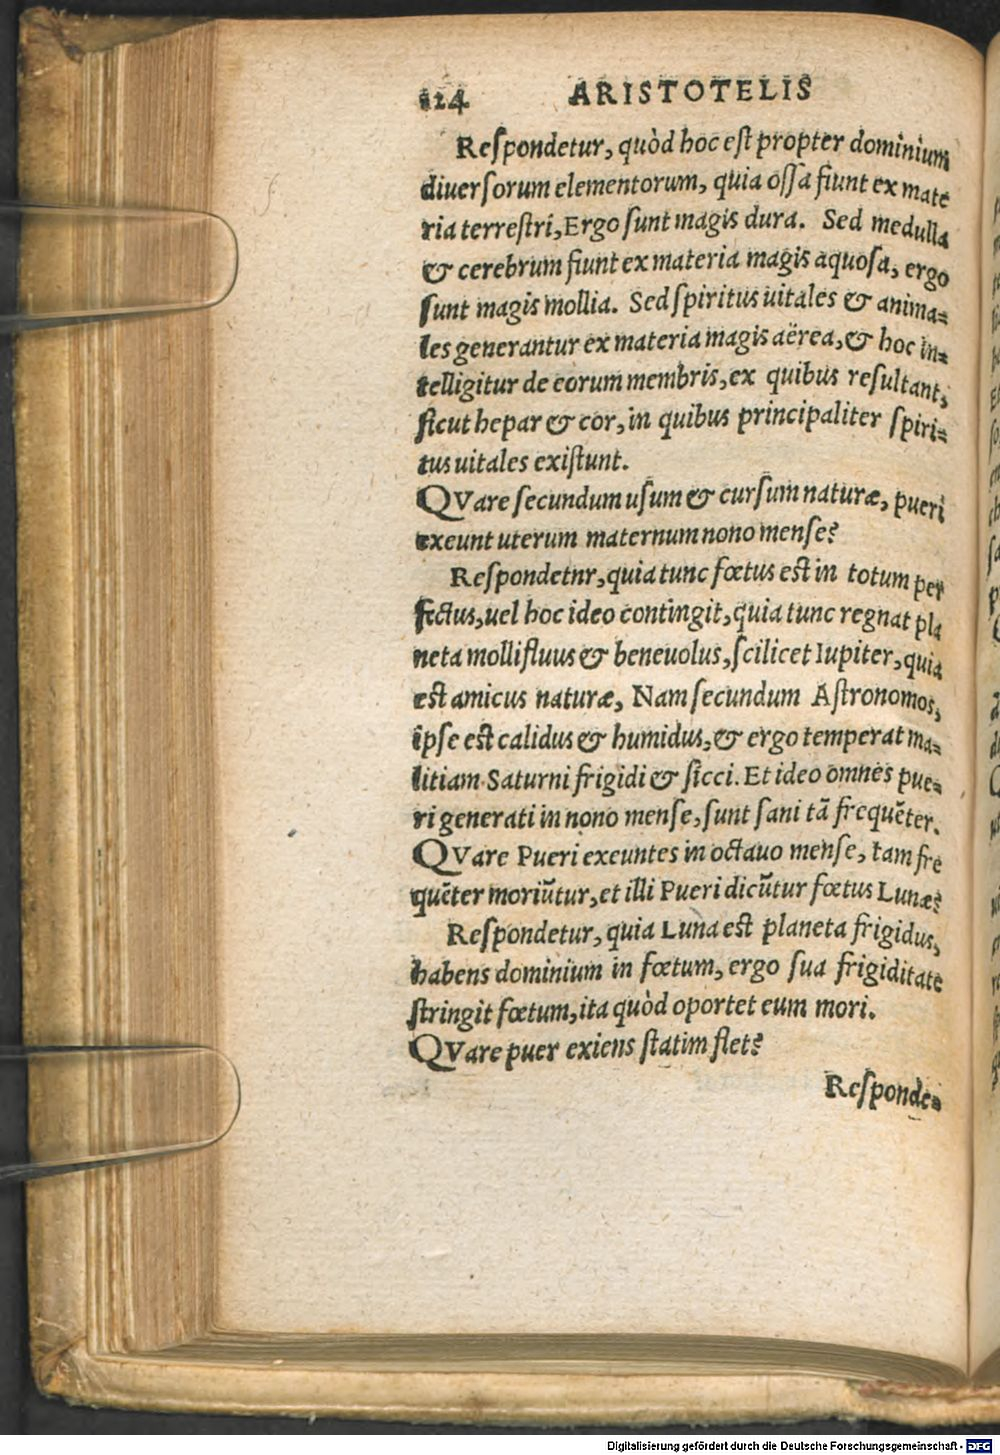 124 ARISTOTELIS
Reſpondetur, quòd hoc eſt propter dominium
diuerſorum elementorum, quia oſſa fiunt ex mate
ria terreſtri, Ergo ſunt magis dura. Sed medulla
& cerebrum fiunt ex materia magis aquoſa, ergo
ſunt magis mollia. Sed ſpiritus uitales & anima=
les generantur ex materia magis aërea, & hoc in=
telligitur de eorum membris, ex quibus reſultant,
ſicut hepar & cor, in quibus principaliter ſpiri=
tus uitales exiſtunt.
QVare ſecundum uſum & curſum naturæ, pueri
exeunt uterum maternum nono menſe?
Reſpondetnr, quia tunc fœtus eſt in totum per
fectus, uel hoc ideo contingit, quia tunc regnat pla
neta mollifluus & beneuolus, ſcilicet Iupiter, quia
eſt amicus naturæ, Nam ſecundum Aſtronomos,
ipſe eſt calidus & humidus, & ergo temperat ma=
litiam Saturni frigidi & ſicci. Et ideo omnes pue=
ri generati in nono menſe, ſunt ſani tã frequẽter.
QVare Pueri exeuntes in octauo menſe, tam fre
quẽter moriũtur, et illi Pueri dicũtur fœtus Lunæ?
Reſpondetur, quia Luna eſt planeta frigidus,
habens dominium in fœtum, ergo ſua frigiditate
ſtringit fœtum, ita quòd oportet eum mori.
QVare puer exiens ſtatim flet?
Reſponde=
Digitalisierung gefördert durch die Deutsche Forschungsgemeinschaft - DFG